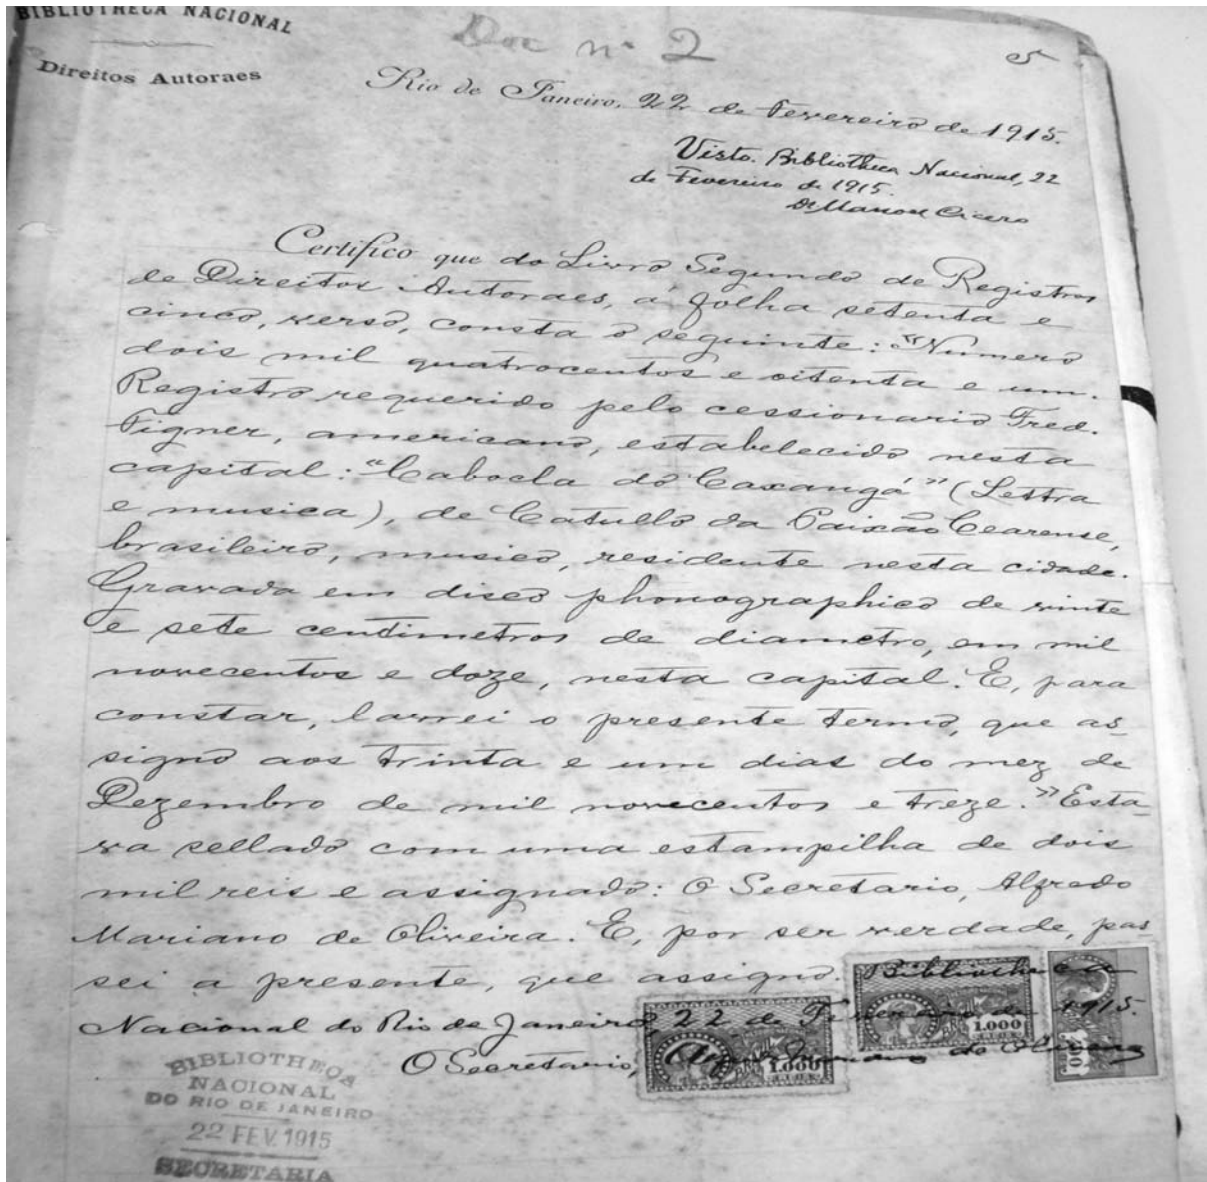 BIBLIOTHECA NACIONAL
Doc nº 2
5
Direitos Autoraes
Rio de Janeiro, 22 de Fevereiro de 1915.
Visto. Bibliotheca Nacional, 22
de Fevereiro de 1915.
Dr Manoel Cicero
Certifico que do Livro Segundo de Registros
de Direitos Autoraes, a folha setenta e
cinco, verso, consta o seguinte: "Numero
dois mil quatrocentos e oitenta e um.
Registro requerido pelo cessionario Fred.
Figner, americano, estabelecido nesta
capital: "Cabocla do Caxangá" (Lettra
e musica), de Catullo da Paixão Cearense,
brasileiro, musico, residente nesta cidade.
Gravada em disco phonographico de vinte
e sete centimetros de diametro, em mil
novecentos e doze, nesta capital. E, para
constar, lavrei o presente termo, que as-
signo aos trinta e um dias do mez de
Dezembro de mil novecentos e treze." Esta-
va sellado com uma estampilha de dois
mil reis e assignado: O Secretario, Alfredo
Mariano de Oliveira. E, por ser verdade, pas
sei a presente, que assigno. Bibliotheca
Nacional do Rio de Janeiro 22 de Fevereiro de 1915.
O Secretario, Alfredo Mariano de Oliveira
1.000
1.000
300
BIBLIOTHECA
NACIONAL
DO RIO DE JANEIRO
22 FEV. 1915
SECRETARIA